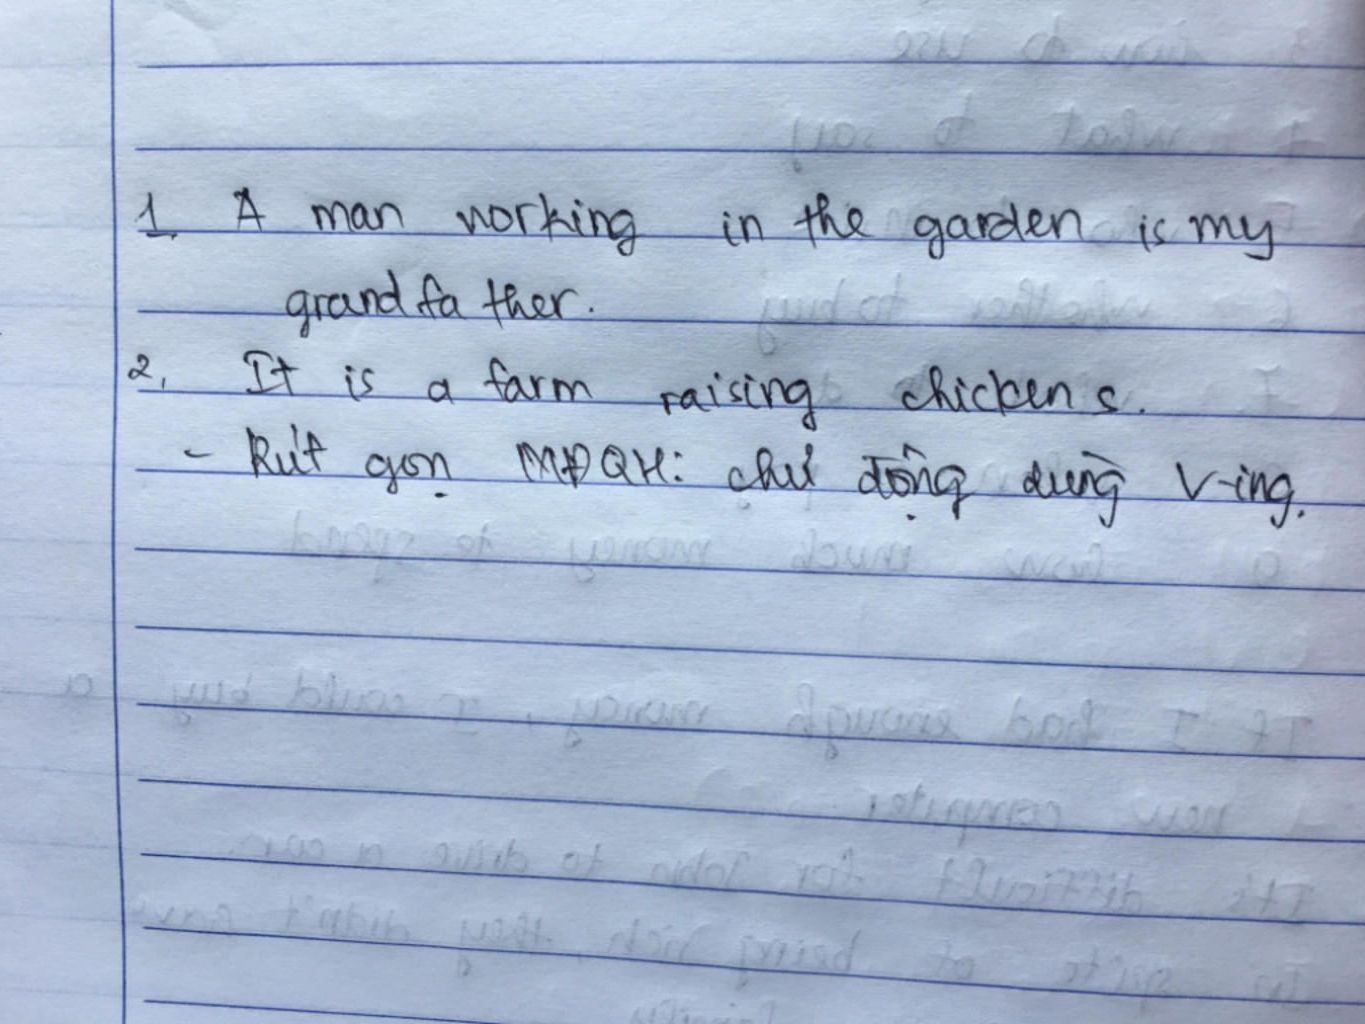 1 A man working in the garden is my
grandfather.
2, It is a farm raising chickens.
- Rút gọn MĐQH: chủ động dùng V-ing.